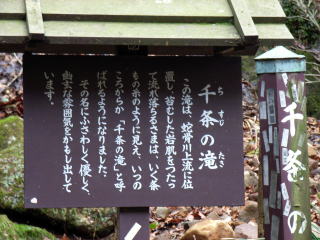 ち すじ たき
千条の滝
この滝は、蛇骨川上流に位
置し、苔むした岩肌をつたっ
て流れ落ちるさまは、いく条
もの糸のように見え、いつの
ころからか「千条の滝」と呼
ばれるようになりました。
その名にふさわしく優しく、
幽玄な雰囲気をかもし出して
います。
千条の